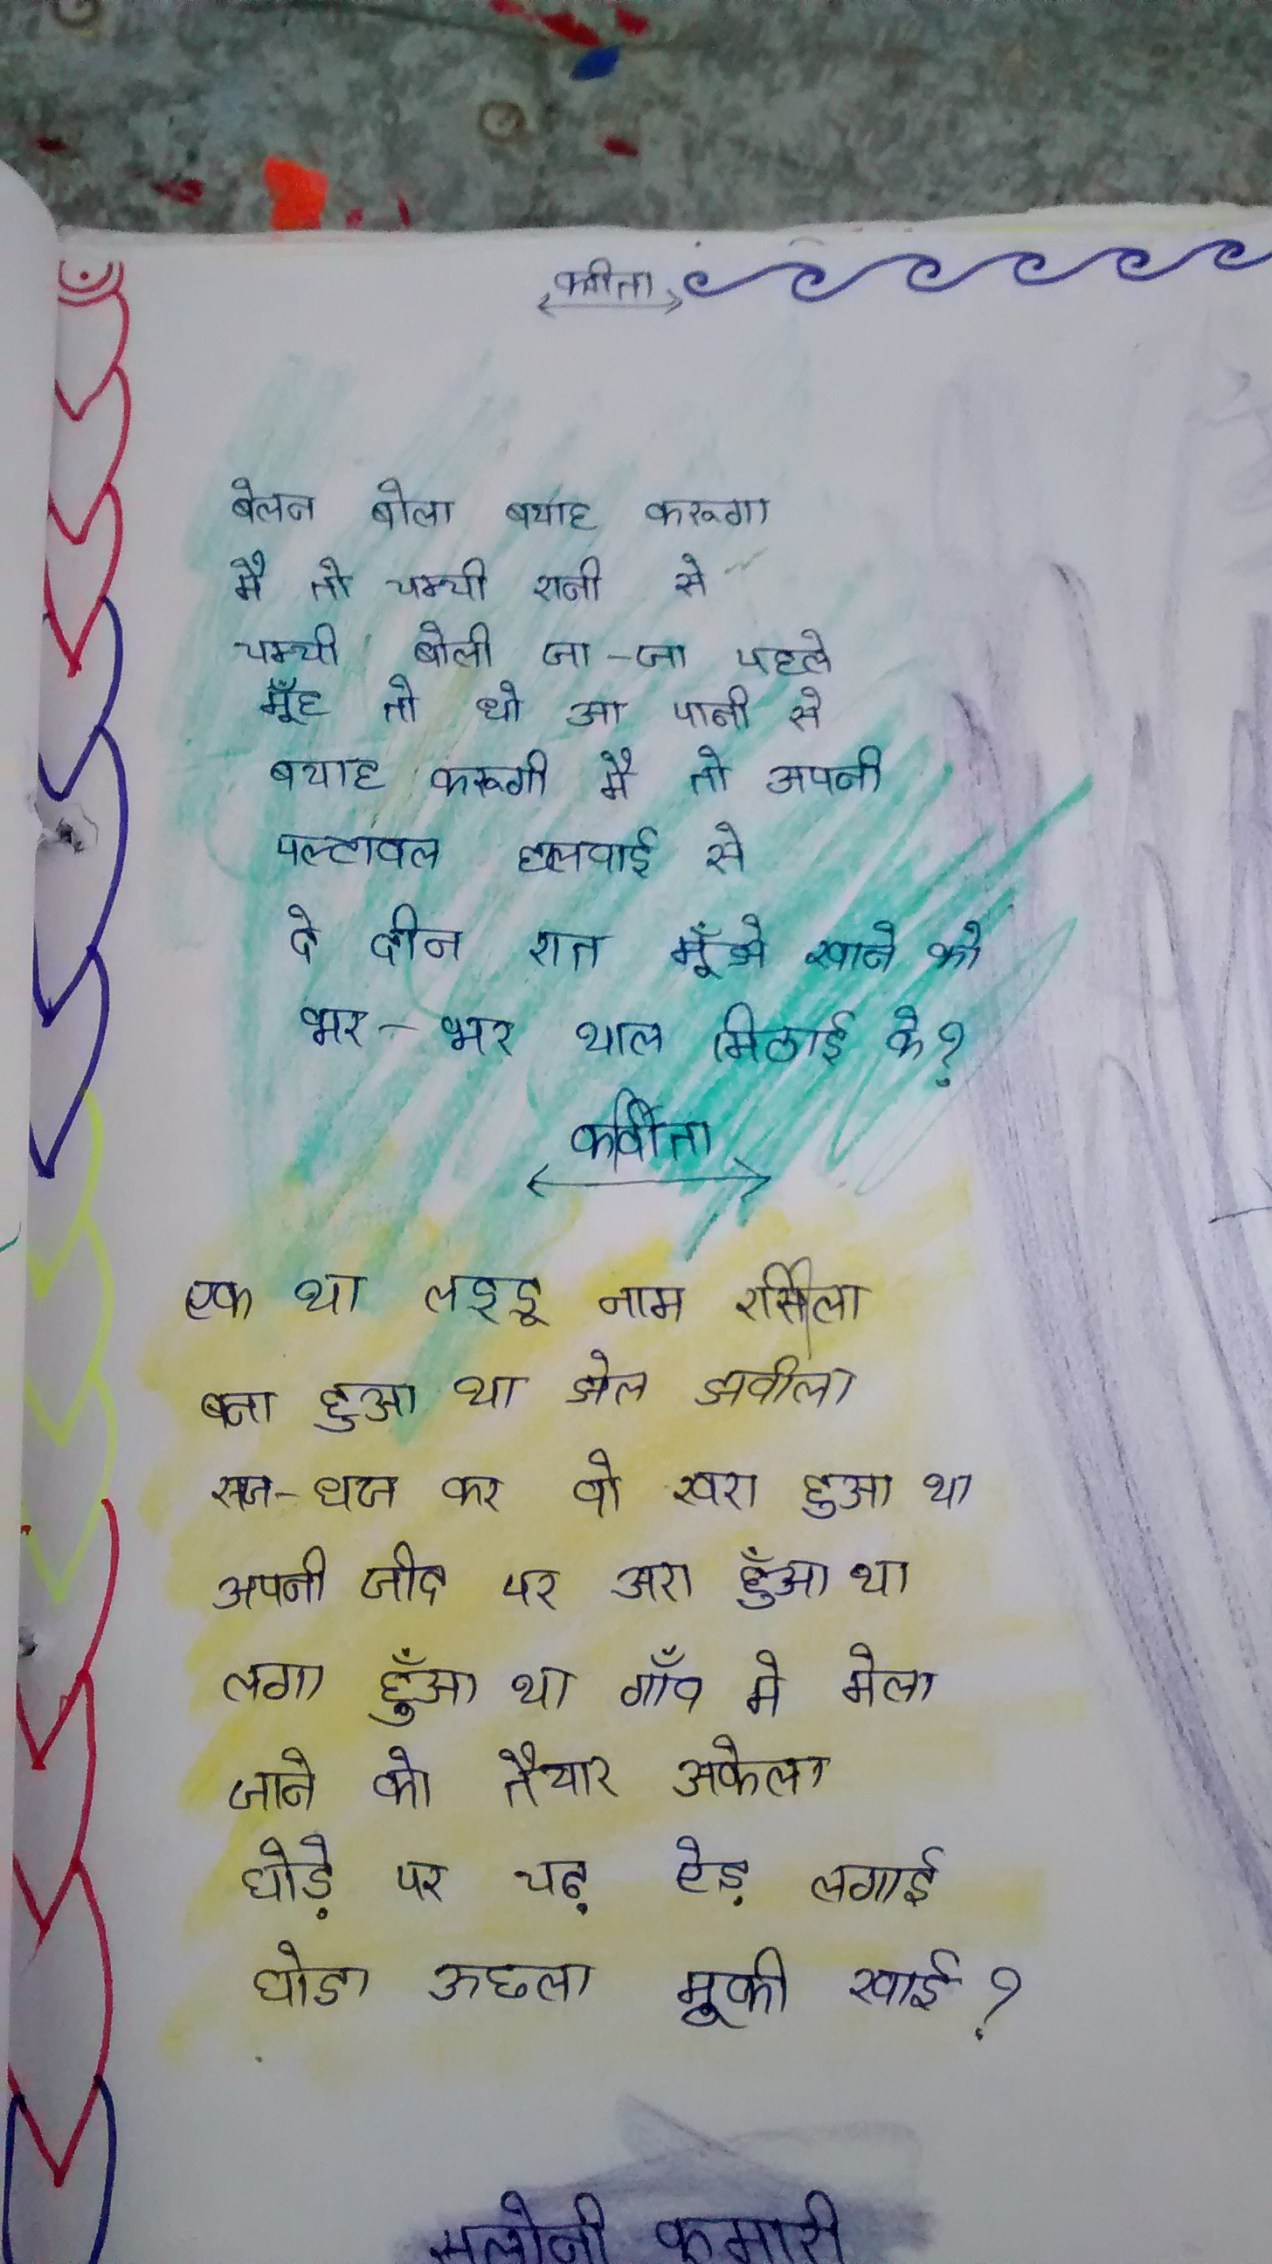 कवीता
बेलन बोला बयाह करूगा
मै तो चम्ची रानी से
चम्ची बोली जा-जा पहले
मूँह तो धो आ पानी से
बयाह करूगी मै तो अपनी
पल्टावल हलवाई से
दे दीन रात मूँझे खाने को
भर-भर थाल मिठाई के?
कवीता
एक था लड्डू नाम रसिला
बना हुआ था झेल झवीला
सज-धज कर वो खरा हुआ था
अपनी जीद पर अरा हुँआ था
लगा हुँआ था गाँव मे मेला
जाने को तैयार अकेला
घोड़े पर चढ़ ऐड़ लगाई
घोडा ऊछला मूकी खाई?
सलोनी कुमारी